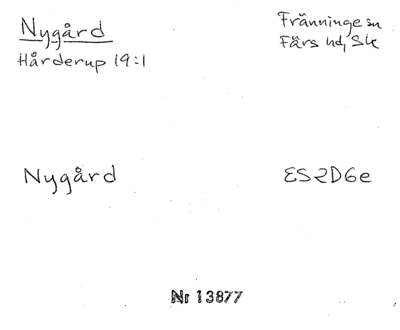 Nygård
Hårderup 19:1
Fränninge sn
Färs hd, Sk
Nygård
ES2D6e
Nr 13877